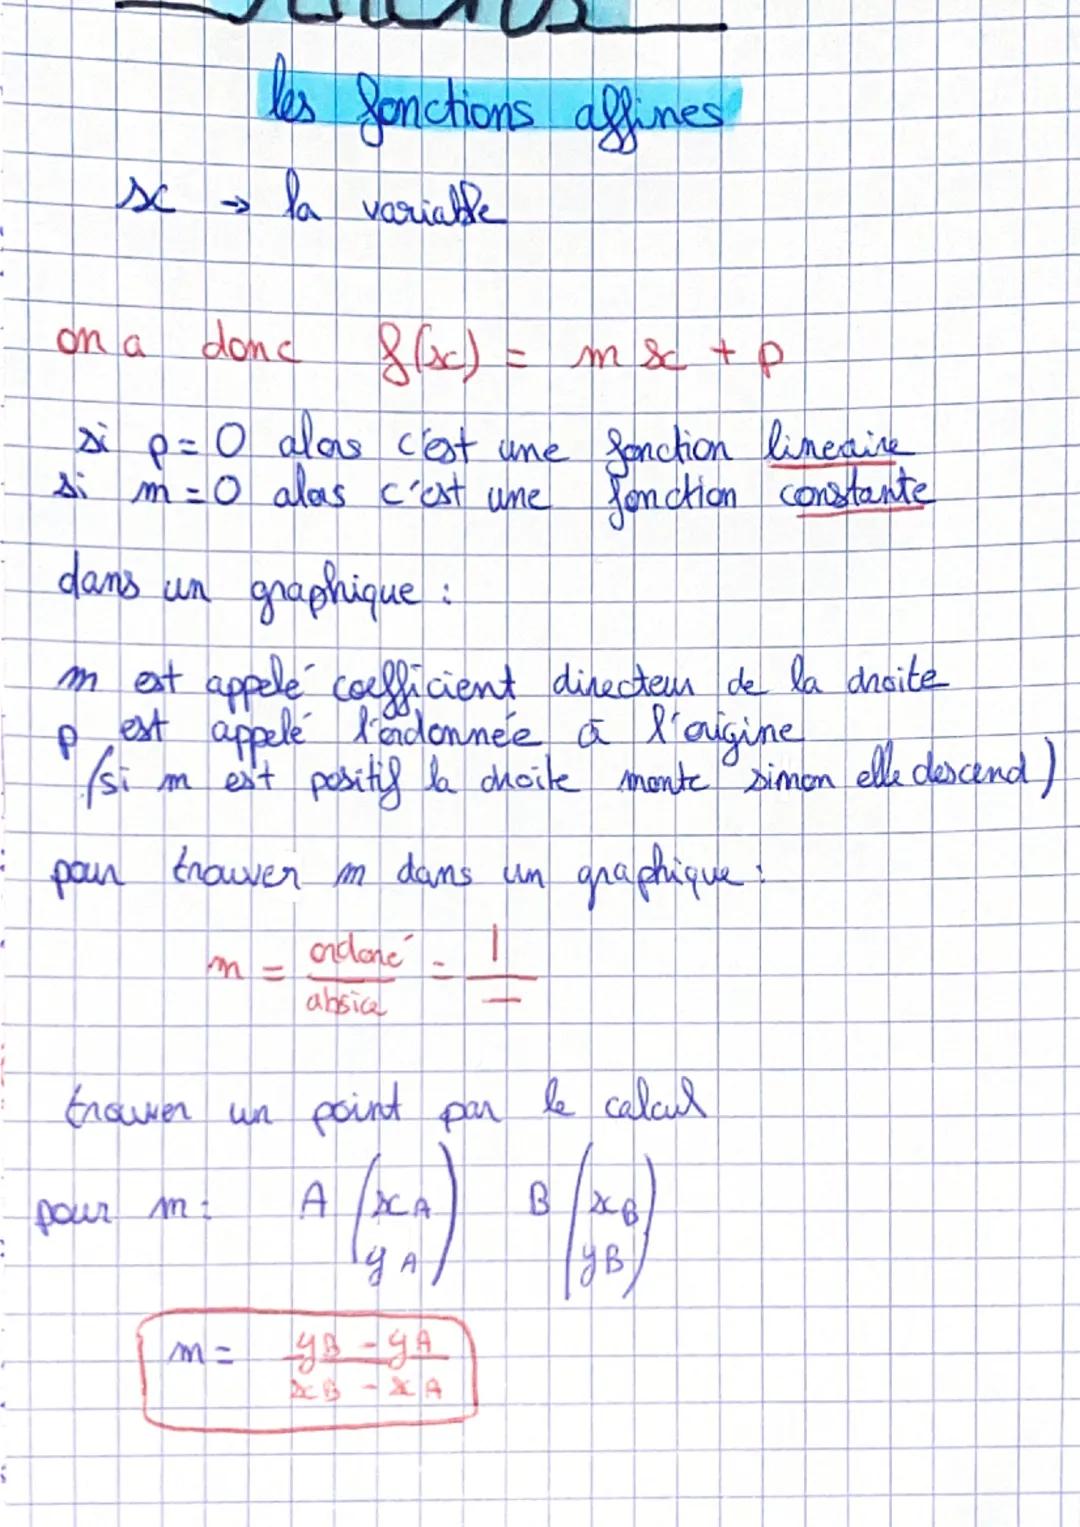 les fonctions affines
x → la variable
on a donc f(x) = mx + p
si p = 0 alors c'est une fonction lineaire
si m = 0 alors c'est une fonction constante
dans un graphique :
m est appelé coefficient directeur de la droite
p est appelé l'ordonnée à l'origine
(si m est positif la droite monte sinon elle descend)
pour trouver m dans un graphique :
m = ordoné / absice = | / —
trouver un point par le calcul
pour m : A (xA yA) B (xB yB)
m = yB - yA / xB - xA